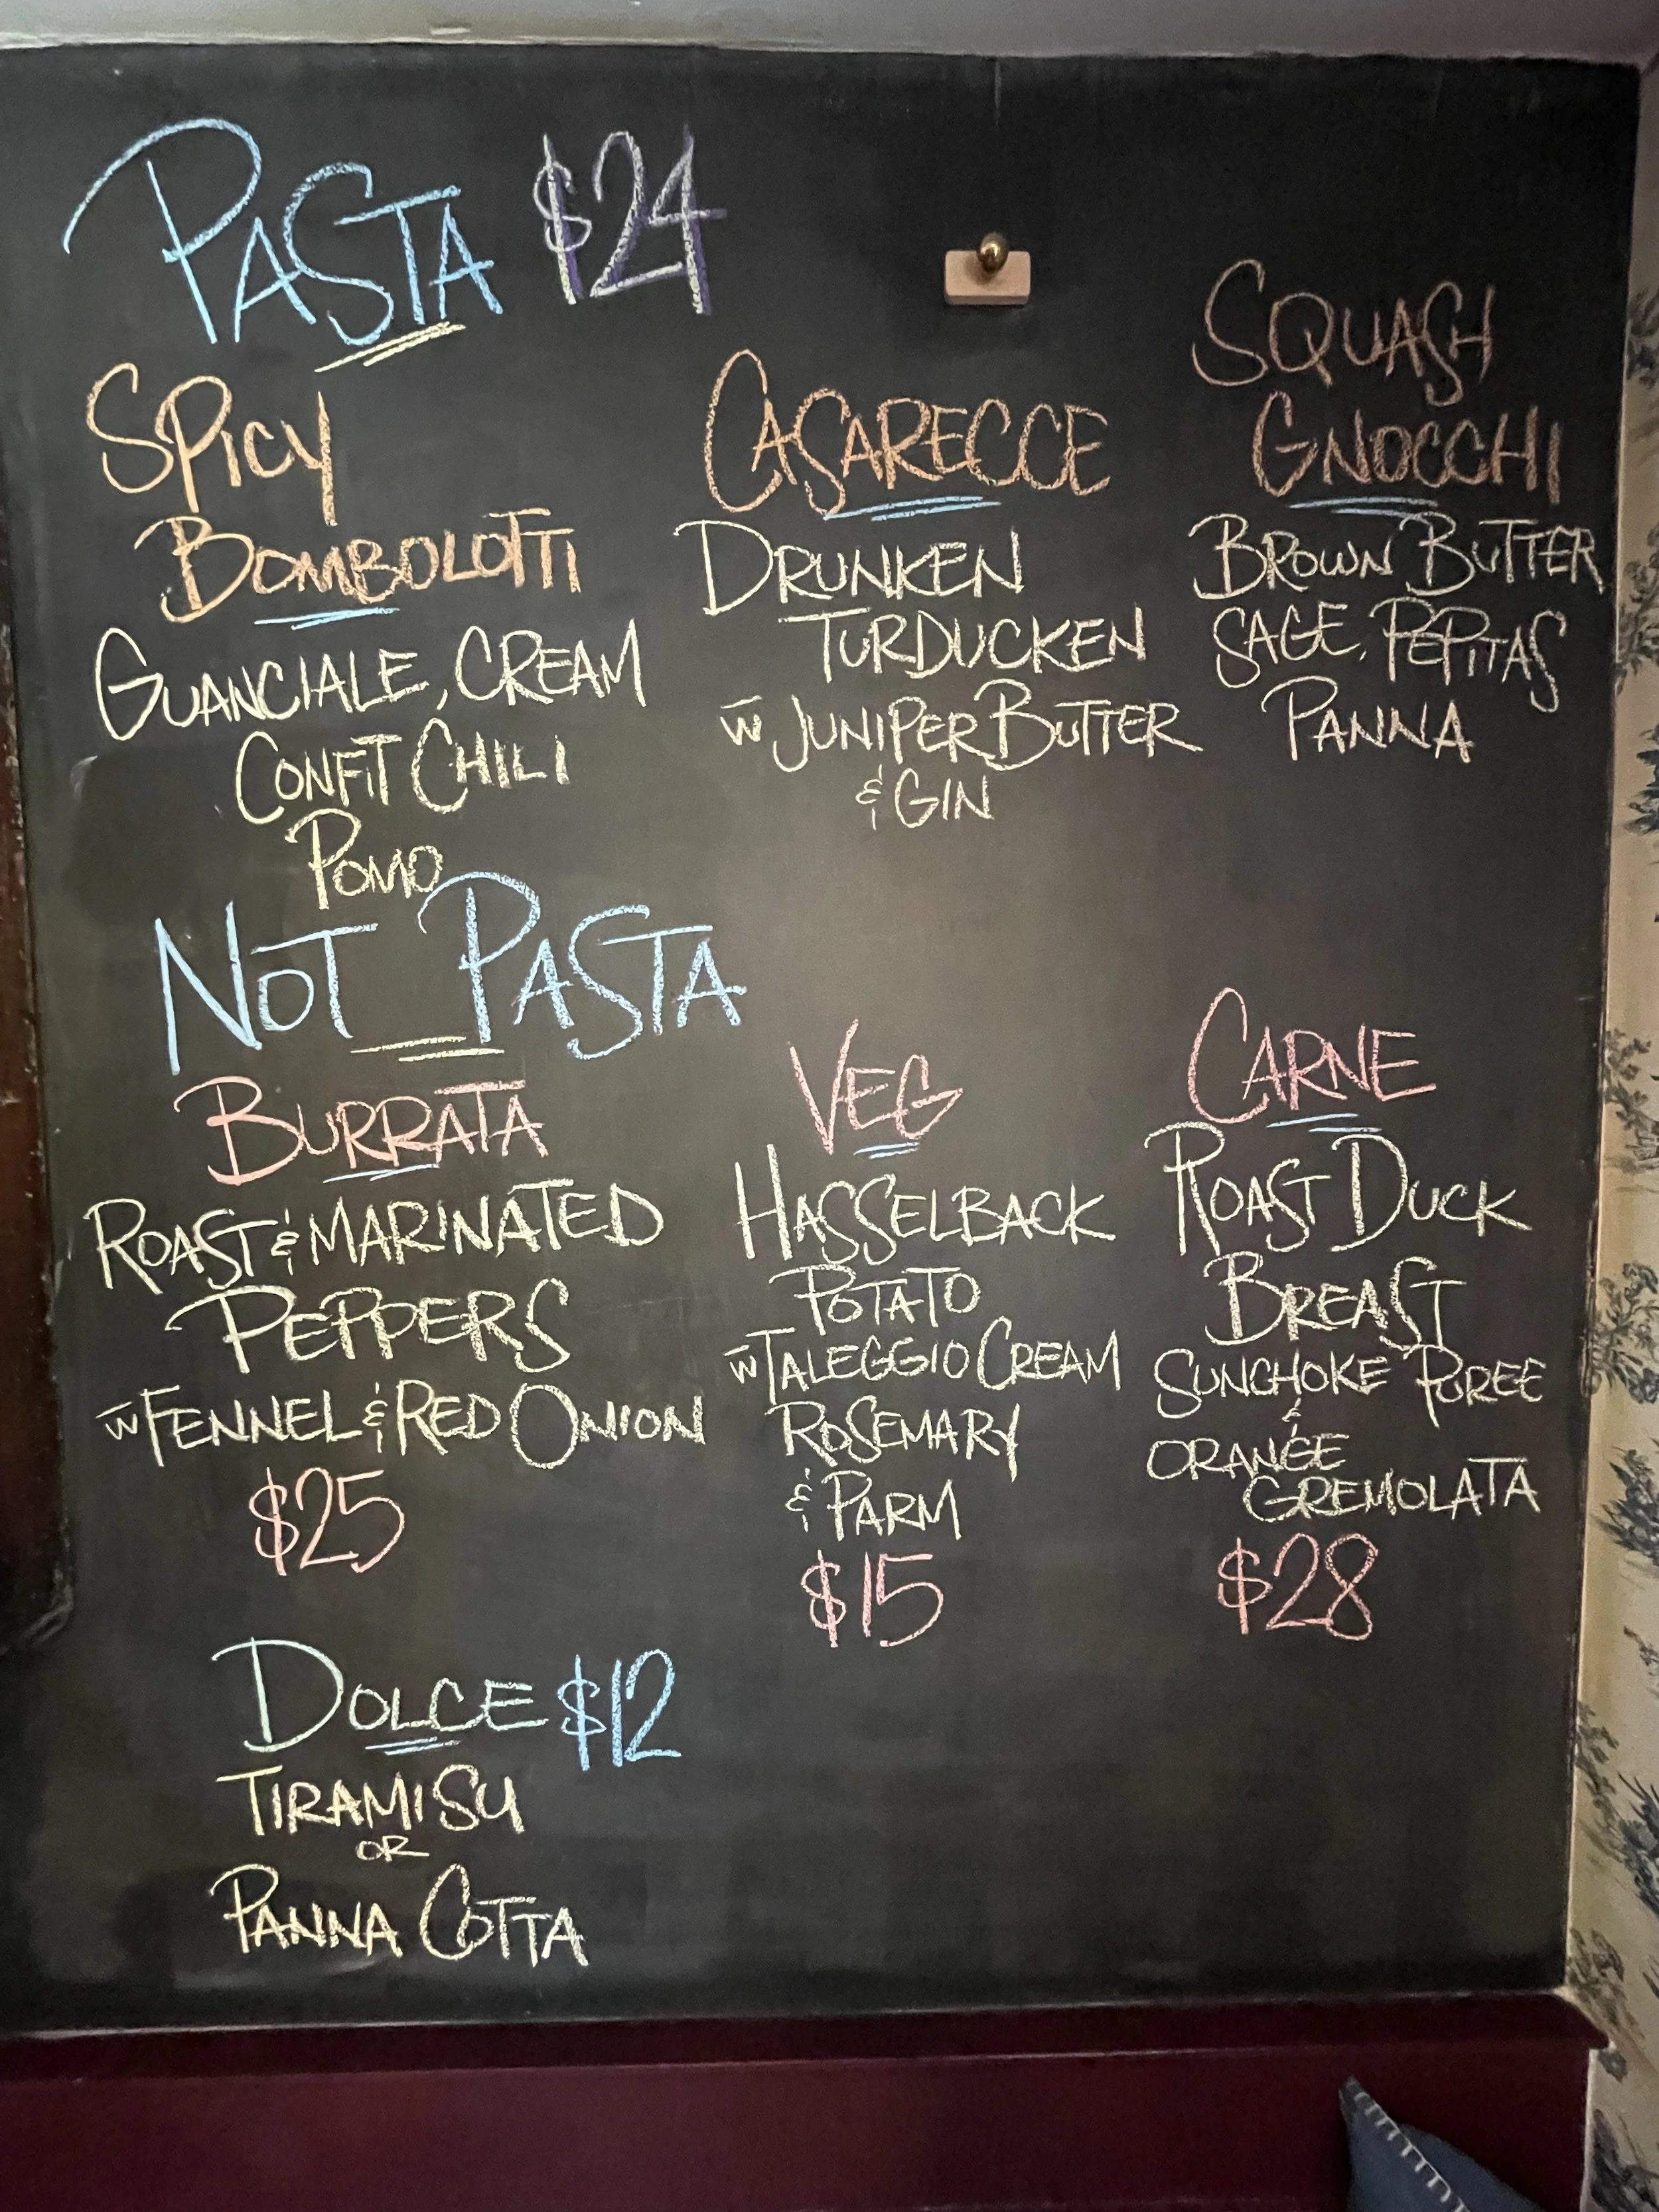 PASTA $24
SPICY
BOMBOLOTTI
GUANCIALE, CREAM
CONFIT CHILI
POMO
CASARECCE
DRUNKEN
TURDUCKEN
w JUNIPER BUTTER
& GIN
SQUASH
GNOCCHI
BROWN BUTTER
SAGE, PEPITAS
PANNA
NOT PASTA
BURRATA
ROAST & MARINATED
PEPPERS
w FENNEL & RED ONION
$25
VEG
HASSELBACK
POTATO
w TALEGGIO CREAM
ROSEMARY
& PARM
$15
CARNE
ROAST DUCK
BREAST
SUNCHOKE PUREE
&
ORANGE
GREMOLATA
$28
DOLCE $12
TIRAMISU
OR
PANNA COTTA